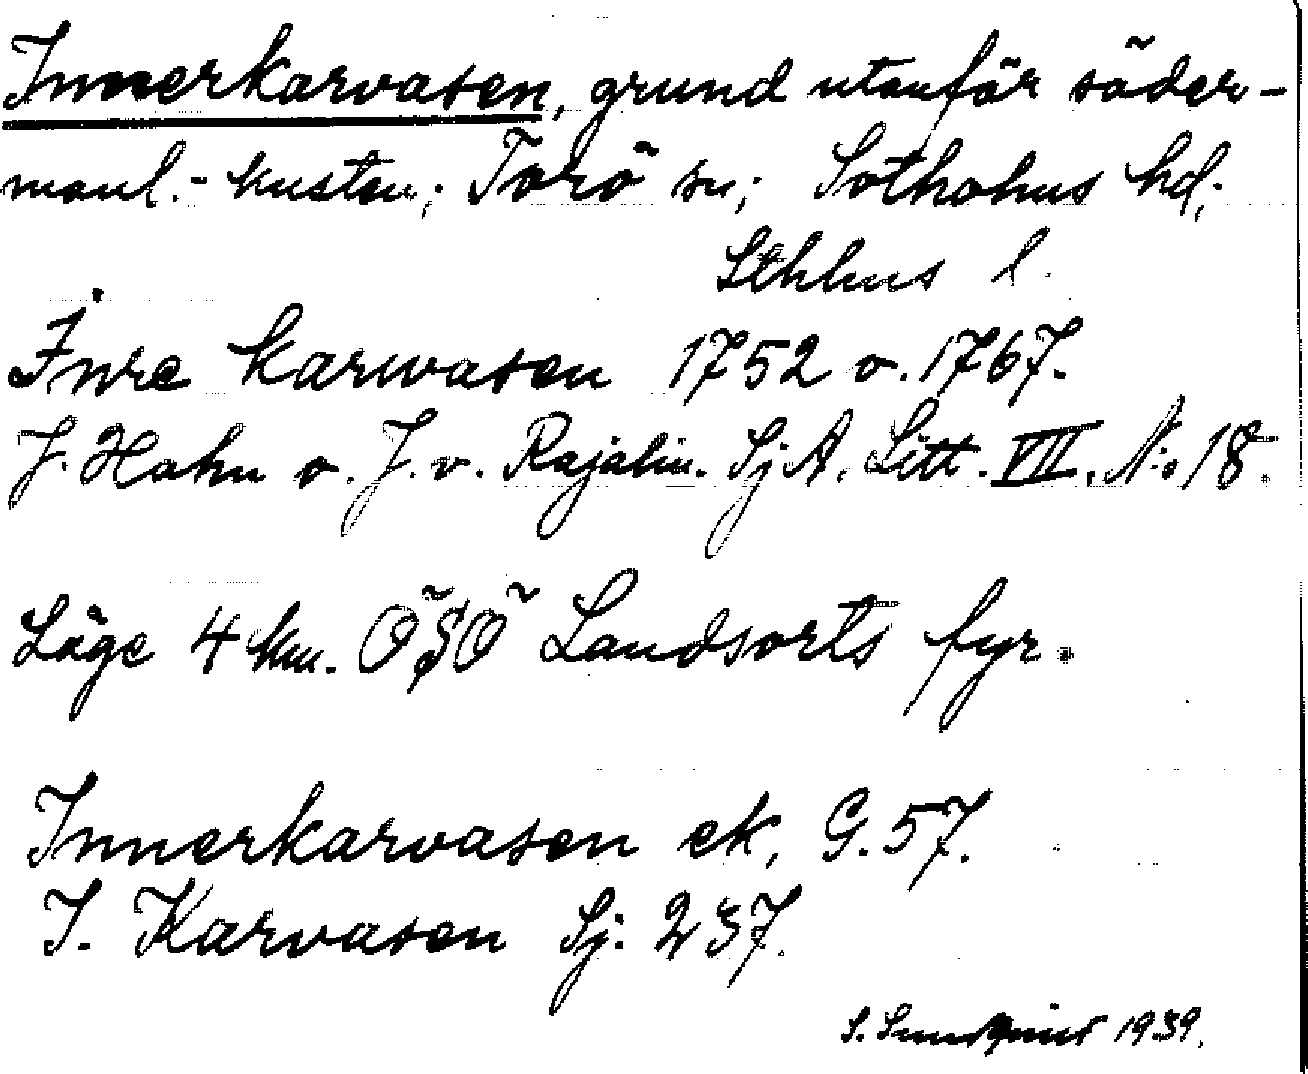 Innerkarvasen, grund utanför söder-
manl.-kusten; Torö sn; Sotholms hd;
Sthlms l.
Inre karwasen 1752 o. 1767.
J. Hahn o. J. v. Rajalin. Sj A. Litt. VII. N:o 18.
Läge 4 km. ÖSÖ Landsorts fyr.
Innerkarvasen ek, G. 57.
I. Karvasen Sj. 237.
S. Sundqvist 1939.